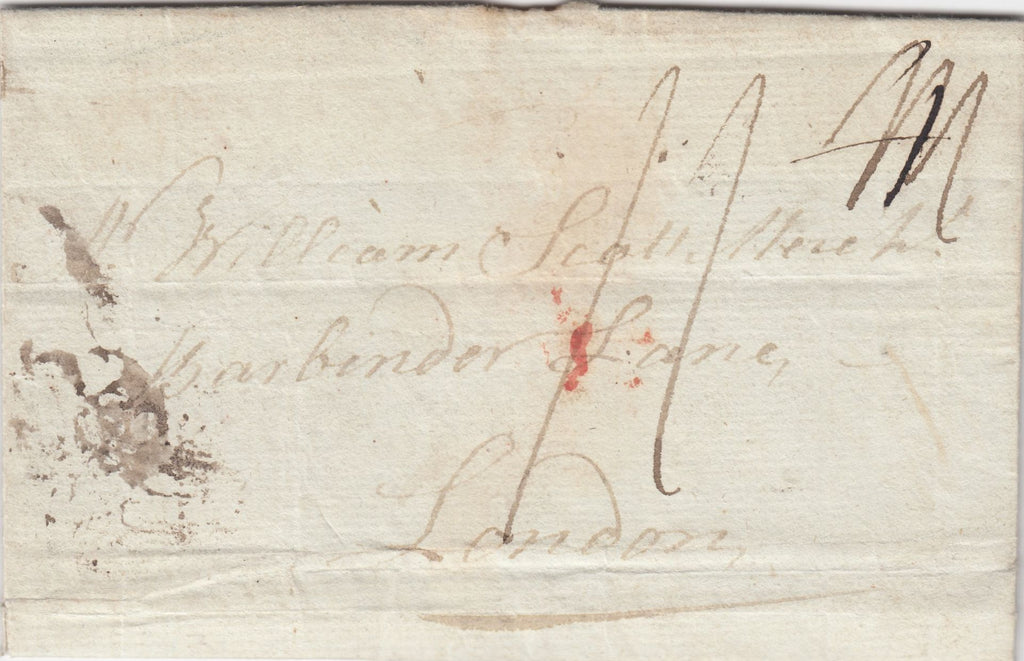 Mr William Scott Mercht
Barbinder Lane,
London,